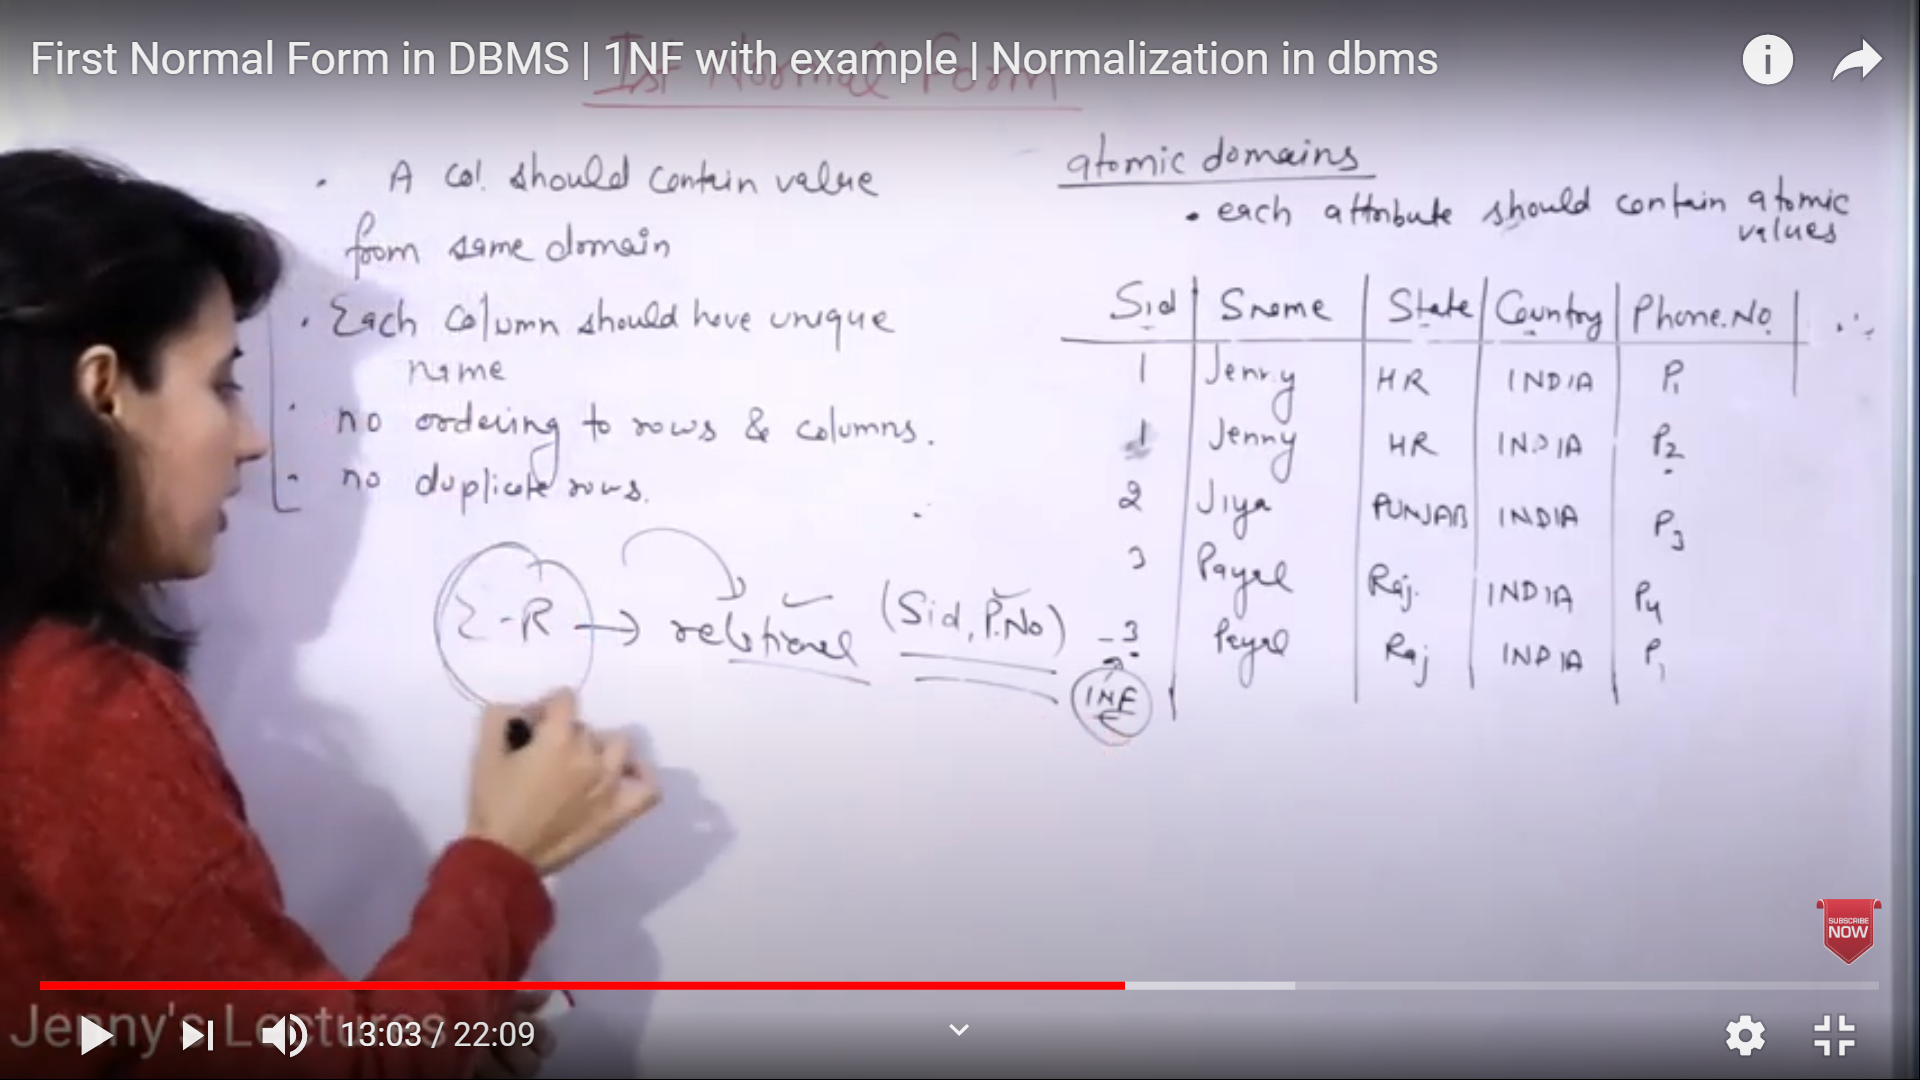 First Normal Form in DBMS | 1NF with example | Normalization in dbms
Ist Normal Form
. A Col. should contain value
from same domain
. Each Column should have unique
name
. no ordering to rows & columns.
- no duplicate rows.
E-R → relational (Sid, P.No)
atomic domains
. each attribute should contain atomic
values
Sid Sname State Country Phone.No
1 Jenny HR INDIA P1
1 Jenny HR INDIA P2
2 Jiya PUNJAB INDIA P3
3 Payal Raj. INDIA P4
3 Payal Raj INDIA P1
1NF
SUBSCRIBE
NOW
Jenny's Lectures
13:03 / 22:09